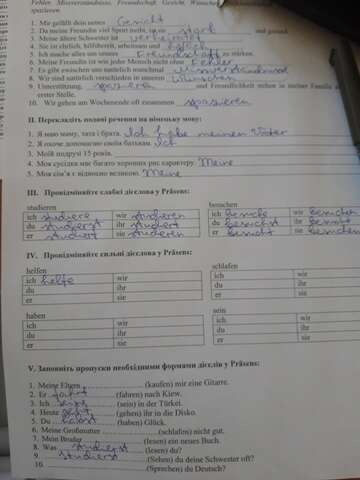 Fehler, Missverständnisse, Freundschaft, Gesicht, Wünschen,
spazieren.
1. Mir gefällt dein nettes Gesicht
2. Da meine Freundin viel Sport treibt, ist sie stark und gesund.
3. Mein älterer Schwester ist verheiratet
4. Sie ist ehrlich, hilfsbereit, arbeitsam und
5. Ich mache alles um unsere Freundschaft zu stärken.
6. Meine Freundin ist wie jeder Mensch nicht ohne Fehler
7. Es gibt zwischen uns natürlich manchmal Missverständnisse
8. Wir sind natürlich verschieden in unseren Wünschen
9. Unterstützung, spazieren und Freundlichkeit stehen in meiner Familie
erster Stelle.
10. Wir gehen am Wochenende oft zusammen spazieren
II. Перекладіть подані речення на німецьку мову:
1. Я маю маму, тата і брата. Ich habe meinen Vater
2. Я охоче допомагаю своїм батькам. Ich
3. Моїй подрузі 15 років.
4. Моя сусідка має багато хороших рис характеру. Meine
5. Моя сім'я є відносно великою. Meine
III. Провідміняйте слабкі дієслова у Präsens:
studieren
ich studiere wir studieren
du studierst ihr studiert
er studiert sie studieren
besuchen
ich besuche wir besuchen
du besuchst ihr besucht
er besucht sie besuchen
IV. Провідміняйте сильні дієслова у Präsens:
helfen
ich helfe wir
du ihr
er sie
schlafen
ich wir
du ihr
er sie
haben
ich wir
du ihr
er sie
sein
ich wir
du ihr
er sie
V. Заповніть пропуски необхідними формами дієслів у Präsens:
1. Meine Eltern (kaufen) mir eine Gitarre.
2. Er fährt (fahren) nach Kiew.
3. Ich (sein) in der Türkei.
4. Heute geht (gehen) ihr in die Disko.
5. Du (haben) Glück.
6. Meine Großmutter (schlafen) nicht gut.
7. Mein Bruder (lesen) ein neues Buch.
8. Was (lesen) du?
9. (Sehen) du deine Schwester oft?
10. (Sprechen) du Deutsch?